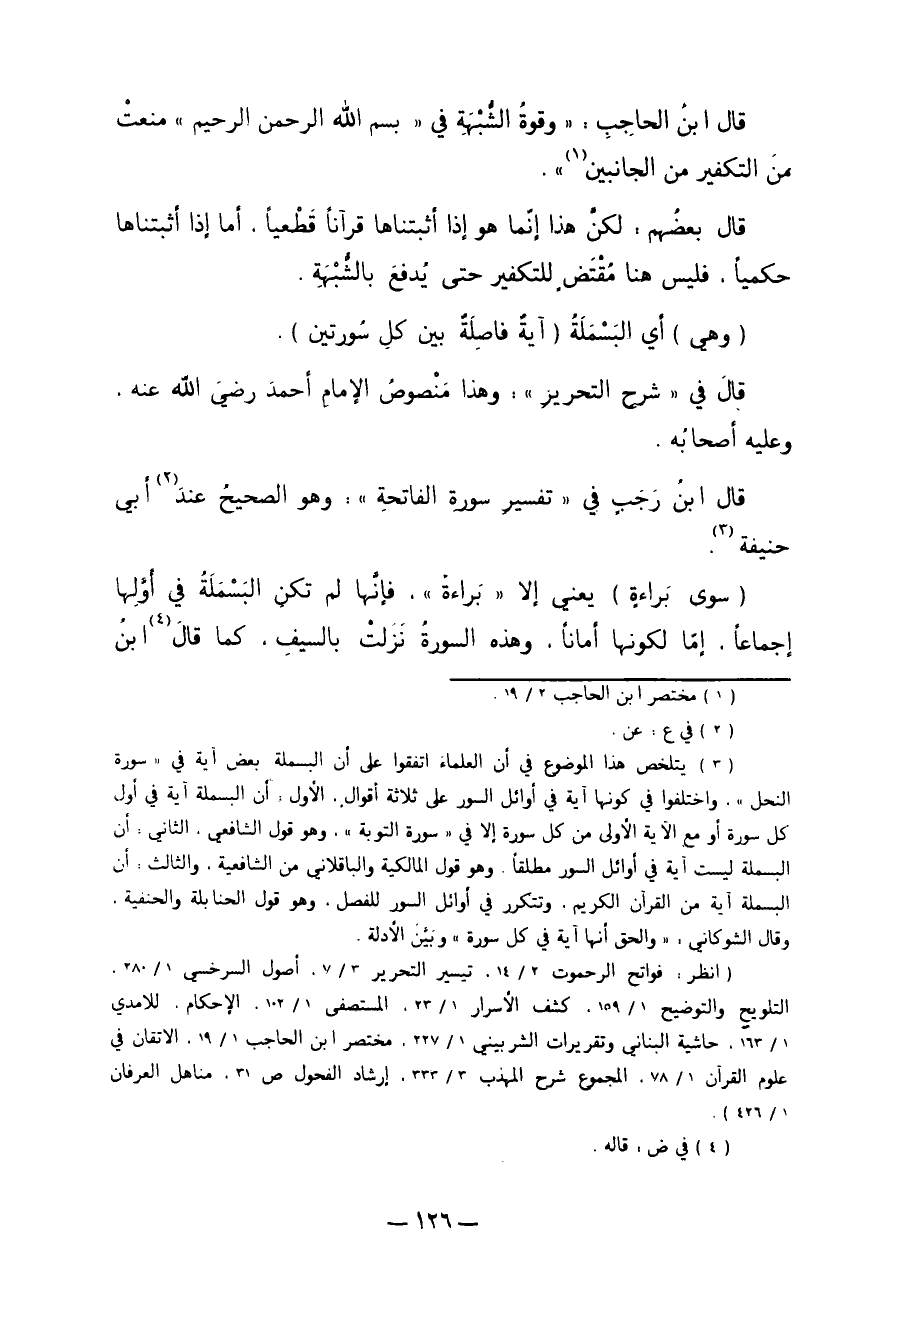 قال ابنُ الحاجِبِ : « وقوةُ الشُّبْهَةِ في « بسم الله الرحمن الرحيم » منعتْ
منَ التكفير من الجانبين(١)» .
قال بعضُهم : لكنَّ هذا إنّما هو إذا أثبتناها قرآناً قَطْعياً ، أما إذا أثبتناها
حكمياً ، فليس هنا مُقْتَضٍ للتكفير حتى يُدفعَ بالشُّبْهَةِ .
( وهي ) أي البَسْمَلَةُ ( آيةٌ فاصِلَةٌ بين كلِ سُورتين ) .
قالَ في « شرحِ التحريرِ » : وهذا مَنْصوصُ الإمامِ أحمدَ رضيَ الله عنه ،
وعليه أصحابُه .
قال ابنُ رَجَبٍ في « تفسيرِ سورةِ الفاتحةِ » : وهو الصحيحُ عندَ(٢) أبي
حنيفة (٣).
( سوى بَراءةٍ ) يعني إلا « بَراءةَ » ، فإنَّها لم تكنِ البَسْمَلَةُ في أوَّلِها
إجماعاً ، إمّا لكونها أماناً ، وهذه السورةُ نَزَلتْ بالسيفِ ، كما قالَ(٤) ابنُ
( ١ ) مختصر ابن الحاجب ٢ / ١٩ .
( ٢ ) في ع : عن .
( ٣ ) يتلخص هذا الموضوع في أن العلماء اتفقوا على أن البسملة بعض آية في « سورة
النحل » ، واختلفوا في كونها آية في أوائل السور على ثلاثة أقوال ، الأول : أن البسملة آية في أول
كل سورة أو مع الآية الأولى من كل سورة إلا في « سورة التوبة » ، وهو قول الشافعي ، الثاني : أن
البسملة ليست آية في أوائل السور مطلقاً . وهو قول المالكية والباقلاني من الشافعية ، والثالث : أن
البسملة آية من القرآن الكريم ، وتتكرر في أوائل السور للفصل ، وهو قول الحنابلة والحنفية ،
وقال الشوكاني : « والحق أنها آية في كل سورة » وبَيّنَ الأدلة .
( انظر : فواتح الرحموت ٢ / ١٤ ، تيسير التحرير ٣ / ٧ ، أصول السرخسي ١ / ٢٨٠ ،
التلويح والتوضيح ١ / ١٥٩ ، كشف الأسرار ١ / ٢٣ ، المستصفى ١ / ١٠٢ ، الإحكام ، للامدي
١ / ١٦٣ ، حاشية البناني وتقريرات الشربيني ١ / ٢٢٧ ، مختصر ابن الحاجب ١ / ١٩ ، الاتقان في
علوم القرآن ١ / ٧٨ ، المجموع شرح المهذب ٣ / ٣٣٣ ، إرشاد الفحول ص ٣١ ، مناهل العرفان
١ / ٤٢٦ ) .
( ٤ ) في ض : قاله .
— ١٢٦ —